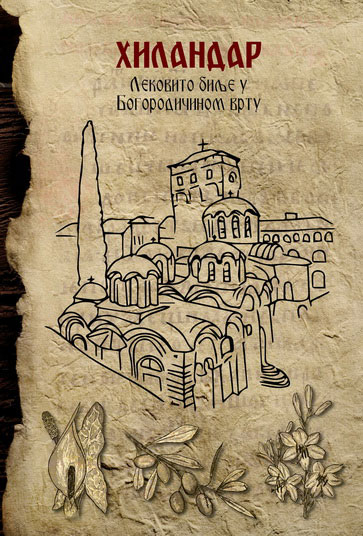 ХИЛАНДАР
Лековито биље у
Богородичином врту